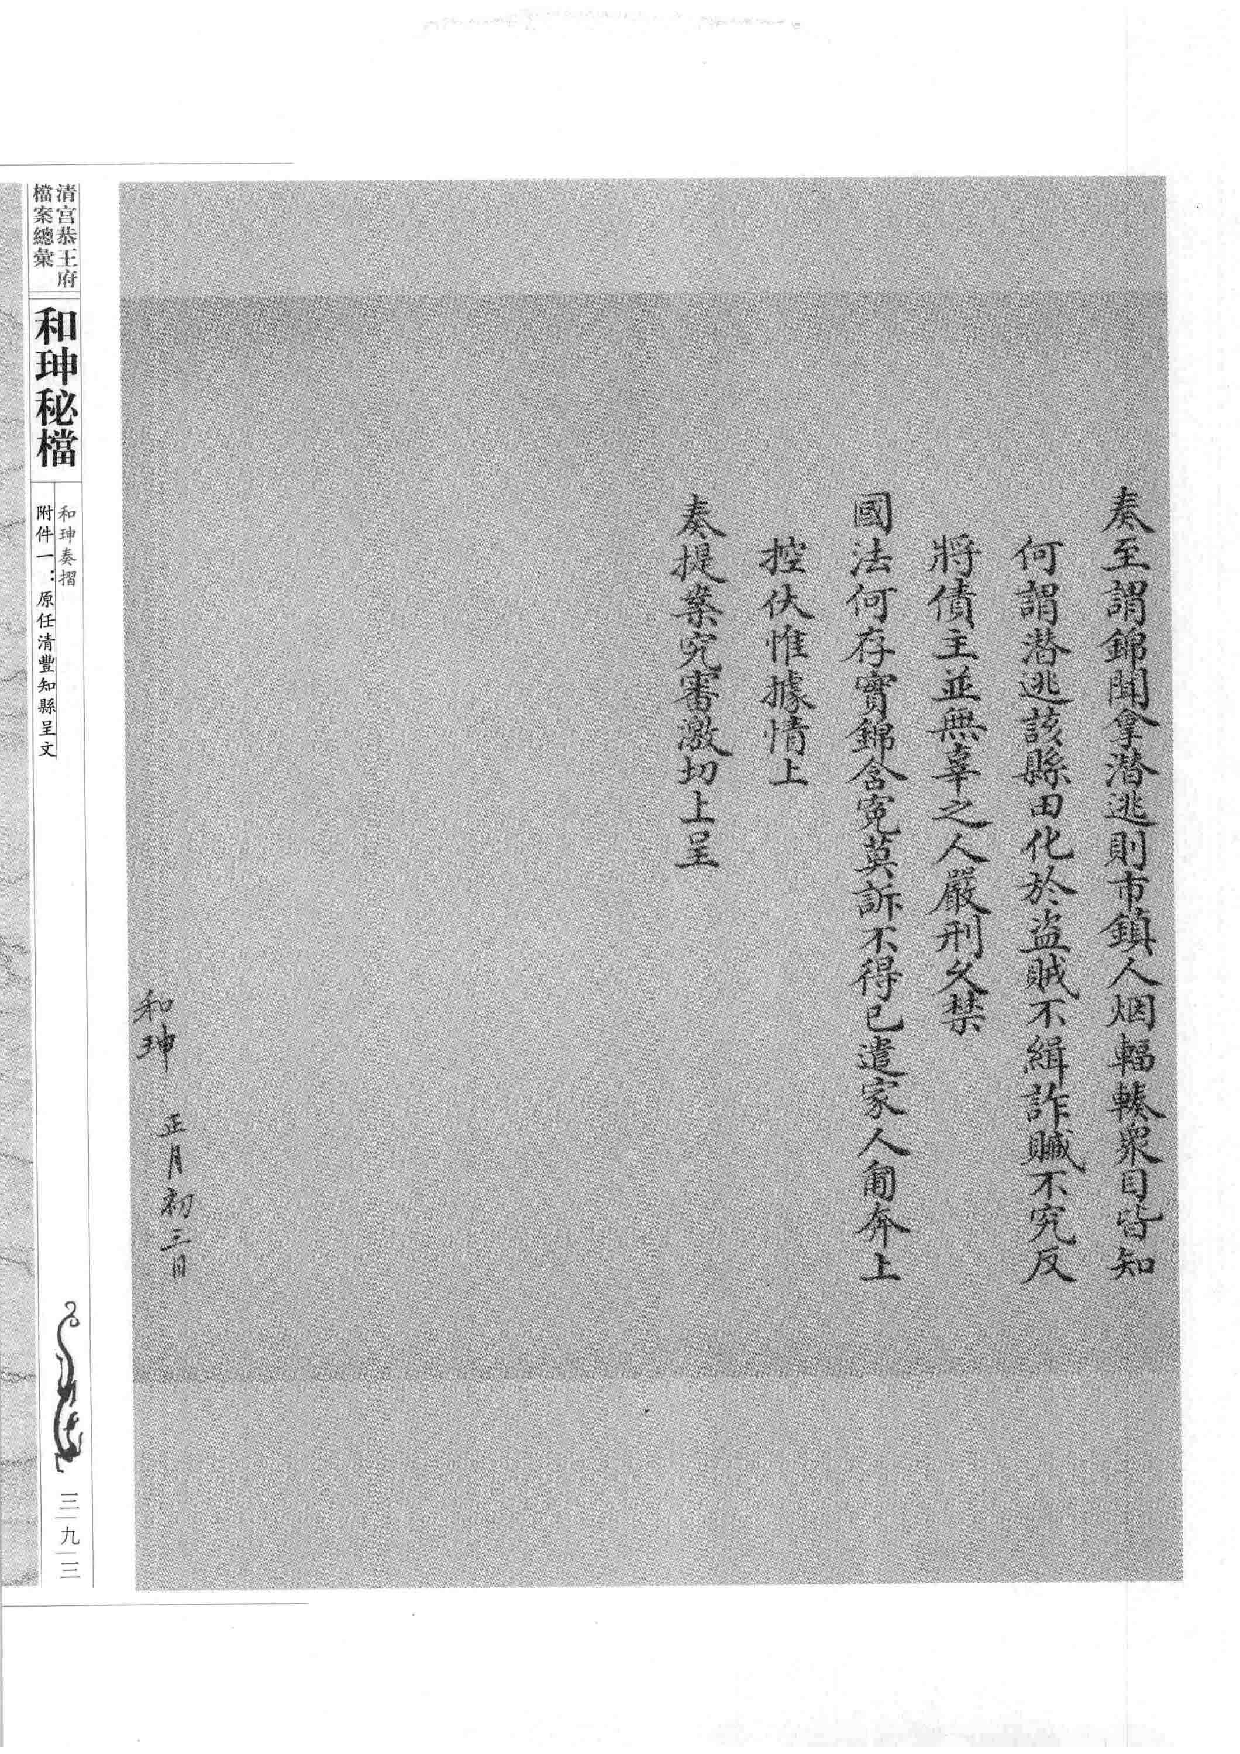 奏至謂錦聞拿潜逃則市鎮人烟輻輳衆目皆知
何謂潜逃該縣田化於盜賊不緝詐贓不究反
將債主並無辜之人嚴刑久禁
國法何存實錦含冤莫訴不得已遣家人匍奔上
控伏惟據情上
奏提案究審激切上呈
和珅 正月初三日
清宮恭王府
檔案總彙
和珅秘檔
和珅奏摺
附件一：原任清豐知縣呈文
三九三